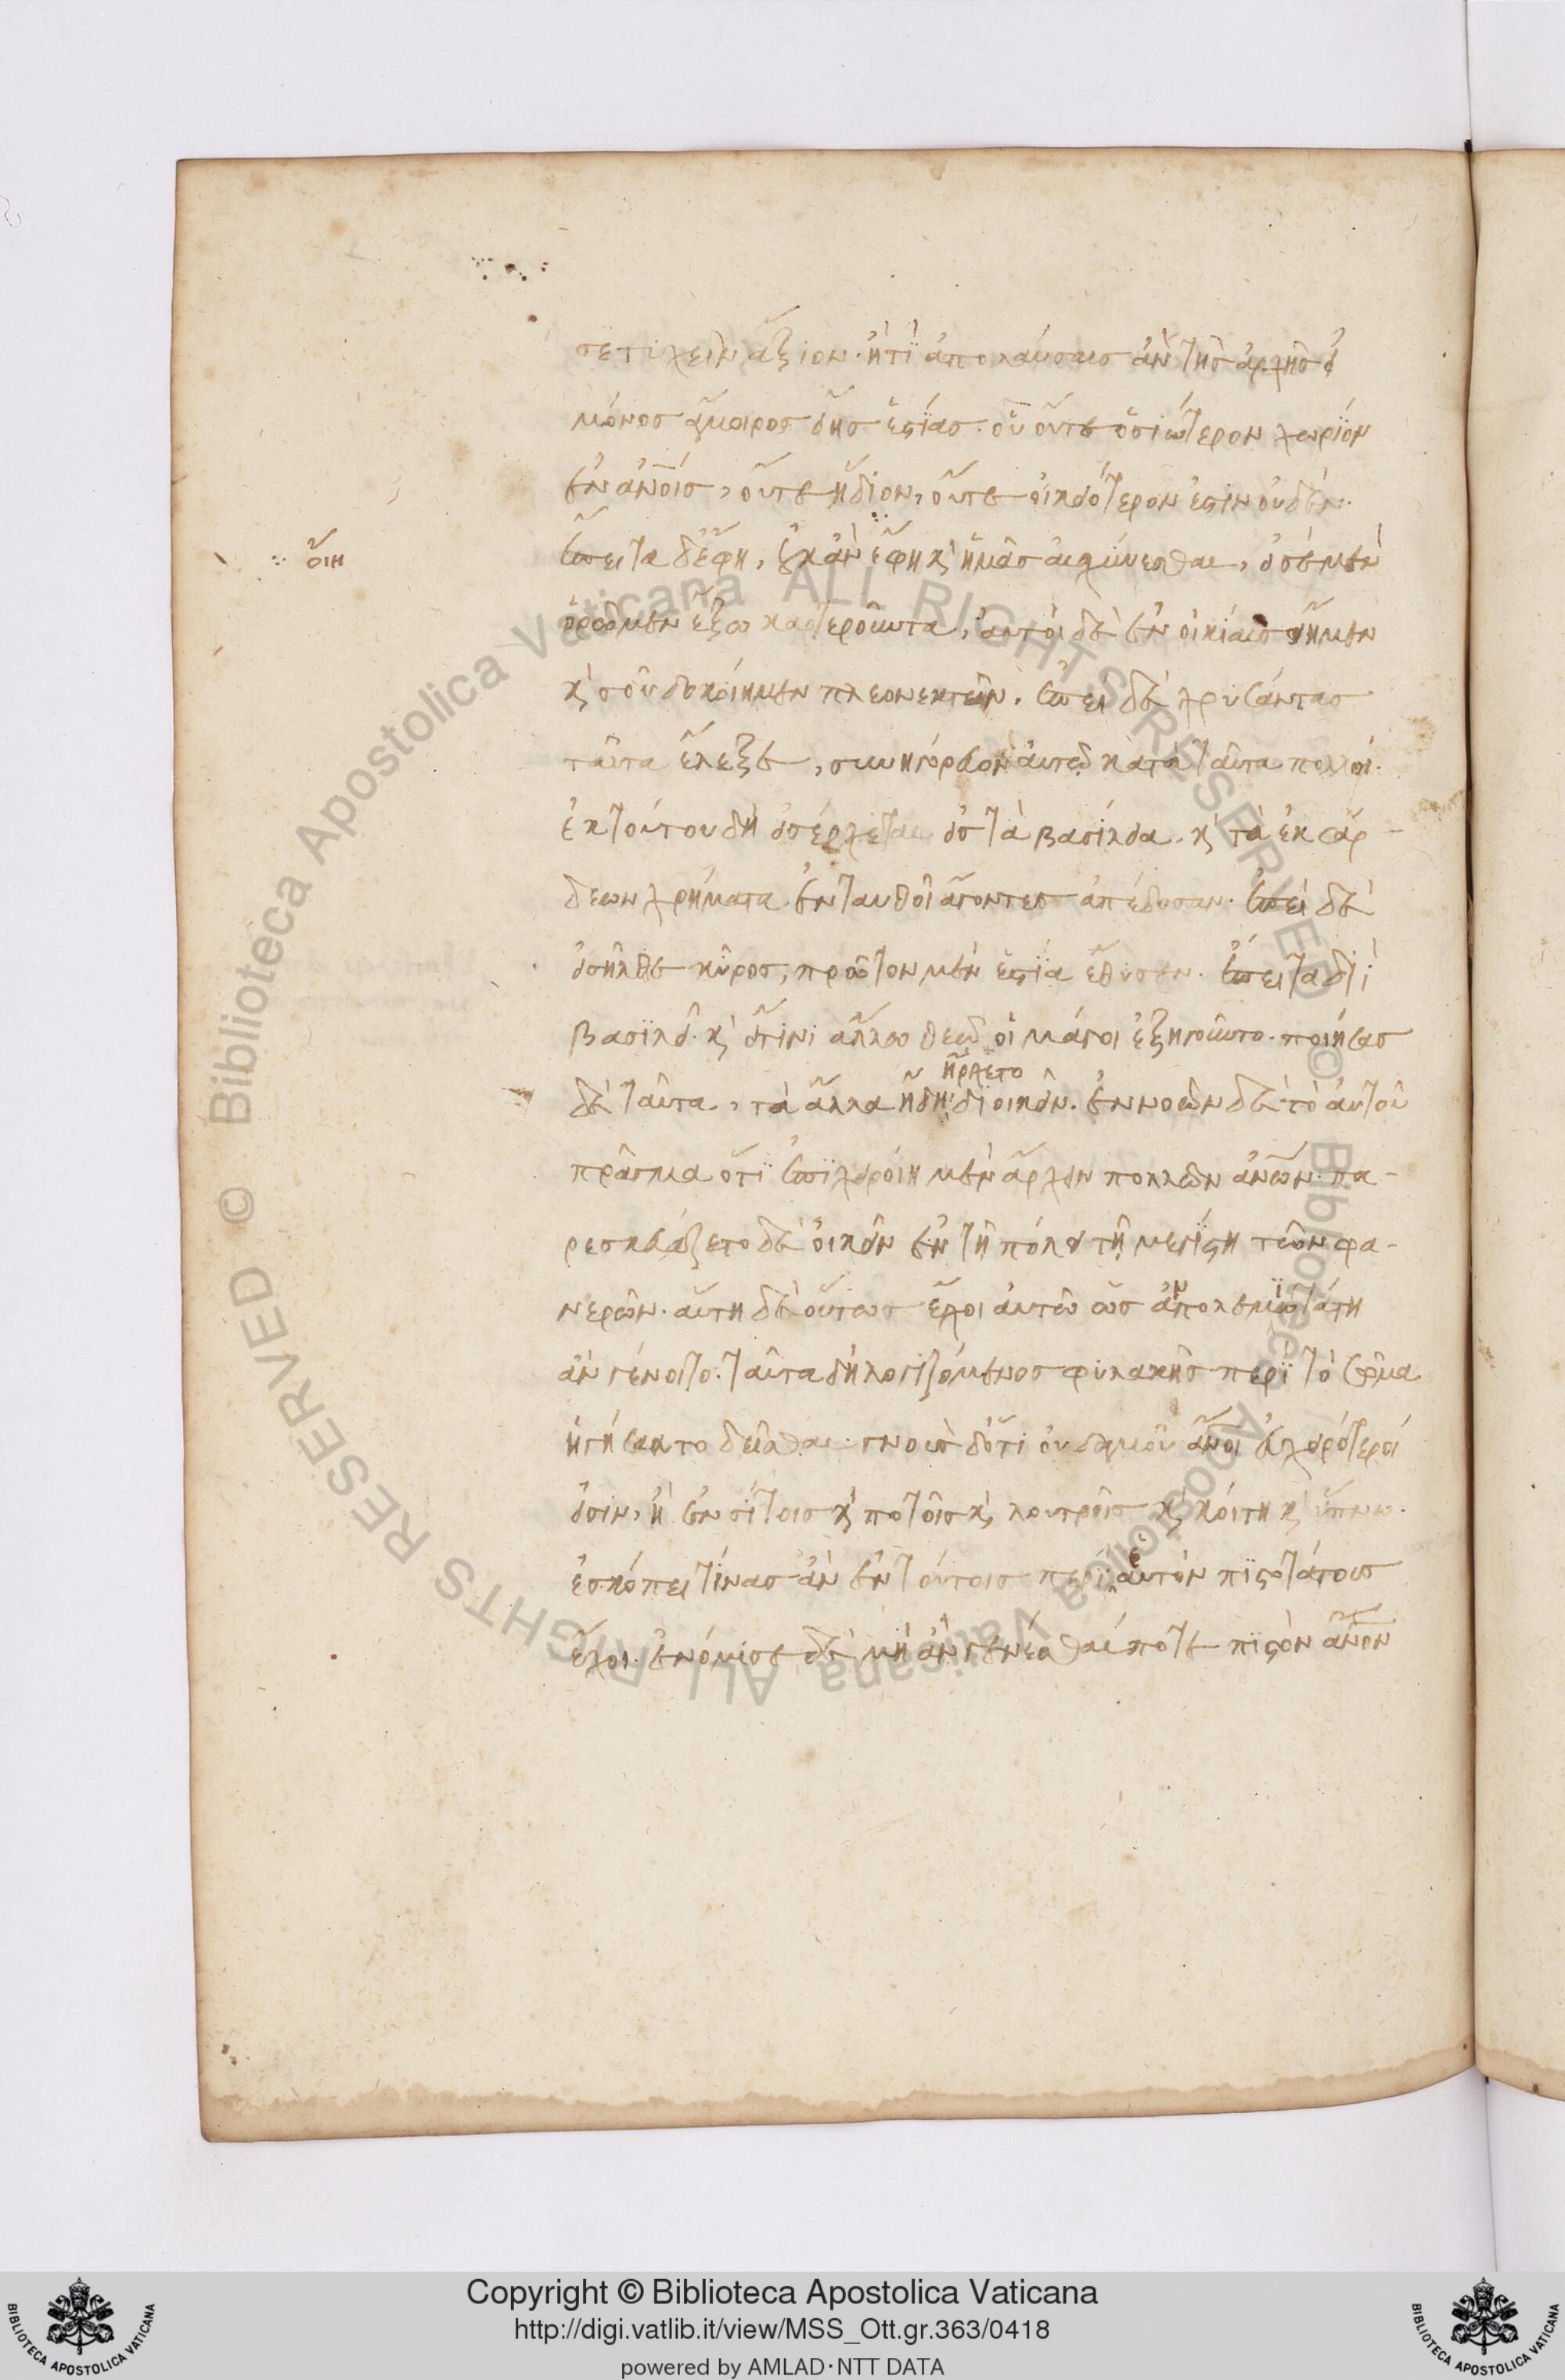 σε τυχεῖν ἄξιον. ἢ τί ἀπολαύσαις ἂν τῆς ἀρχῆς εἰ
μόνος ἄμοιρος εἴης ἑστίας. οὗ οὔτε ὁσιώτερον χωρίον
ἐν ἀνοις, οὔτε ἥδιον, οὔτε οἰκειότερον ἐστιν οὐδέν.
ἔπειτα δ' ἔφη, οὐκ ἂν ἔφη κ ἡμᾶς αἰσχύνεσθαι, εἰ σὲ μὲν
οἴη
ὁρῶμεν ἔξω καρτεροῦντα, αὐτοὶ δὲ ἐν οἰκίαις εἴημεν
κ σοῦ δοκοίημεν πλεονεκτεῖν. ἐπεὶ δὲ χρυσάντας
ταῦτα ἔλεξε, συνηγόρευον αὐτῷ κατὰ ταῦτα πολλοί.
ἐκ τούτου δὴ εἰσέρχεται εἰς τὰ βασίλεια. κ τὰ ἐκ σάρ-
δεων χρήματα ἐνταυθοῖ ἄγοντες ἀπέδοσαν. ἐπεὶ δὲ
εἰσῆλθε κῦρος, πρῶτον μὲν ἑστία ἔθυσεν. ἔπειτα διὶ
βασιλεῖ. κ εἴ τινι ἄλλω θεῷ οἱ μάγοι ἐξηγοῦντο. ποιήσας
ἤρχετο
δὲ ταῦτα, τὰ ἄλλα ἤδη διοικεῖν. ἐννοῶν δὲ τὸ αὐτοῦ
πρᾶγμα ὅτι ἐπιχειροίη μὲν ἄρχειν πολλῶν ἀνων. πα-
ρεσκευάζετο δὲ οἰκεῖν ἐν τῇ πόλει τῇ μεγίστη τῶν φα-
νερῶν. αὕτη δὲ οὕτως ἔχοι αὐτῶ ὡς ἂν πολεμιωτάτη
ἂν γένοιτο. ταῦτα δὴ λογιζόμενος φυλακῆς περὶ τὸ σῶμα
ἡγήσατο δεῖσθαι. γνοὺς δ' ὅτι οὐδαμοῦ ἄνοι εὐχειρότεροί
εἰσιν, ἢ ἐν σίτοις κ ποτοῖς κ λουτροῖς κ κοίτη κ ὕπνω.
ἐσκόπει τίνας ἂν ἐν τούτοις περὶ ἑαυτὸν πιστοτάτους
ἔχοι. ἐνόμισε δὲ μὴ ἂν γενέσθαι ποτε πιστὸν ἄνον
Copyright © Biblioteca Apostolica Vaticana
http://digi.vatlib.it/view/MSS_Ott.gr.363/0418
powered by AMLAD·NTT DATA